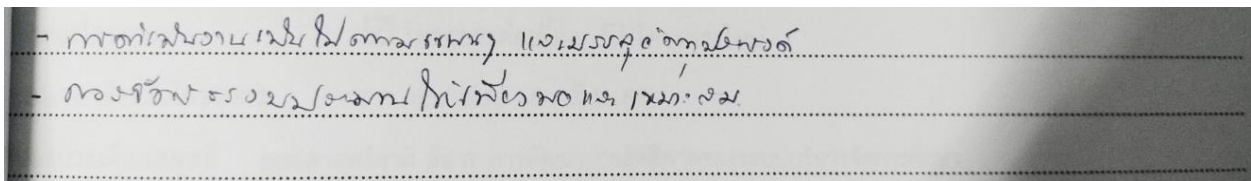 - การดำเนินงานเป็นไปตามแผนฯ และบรรลุวัตถุประสงค์
- ควรจัดสรรงบประมาณให้เพียงพอและเหมาะสม